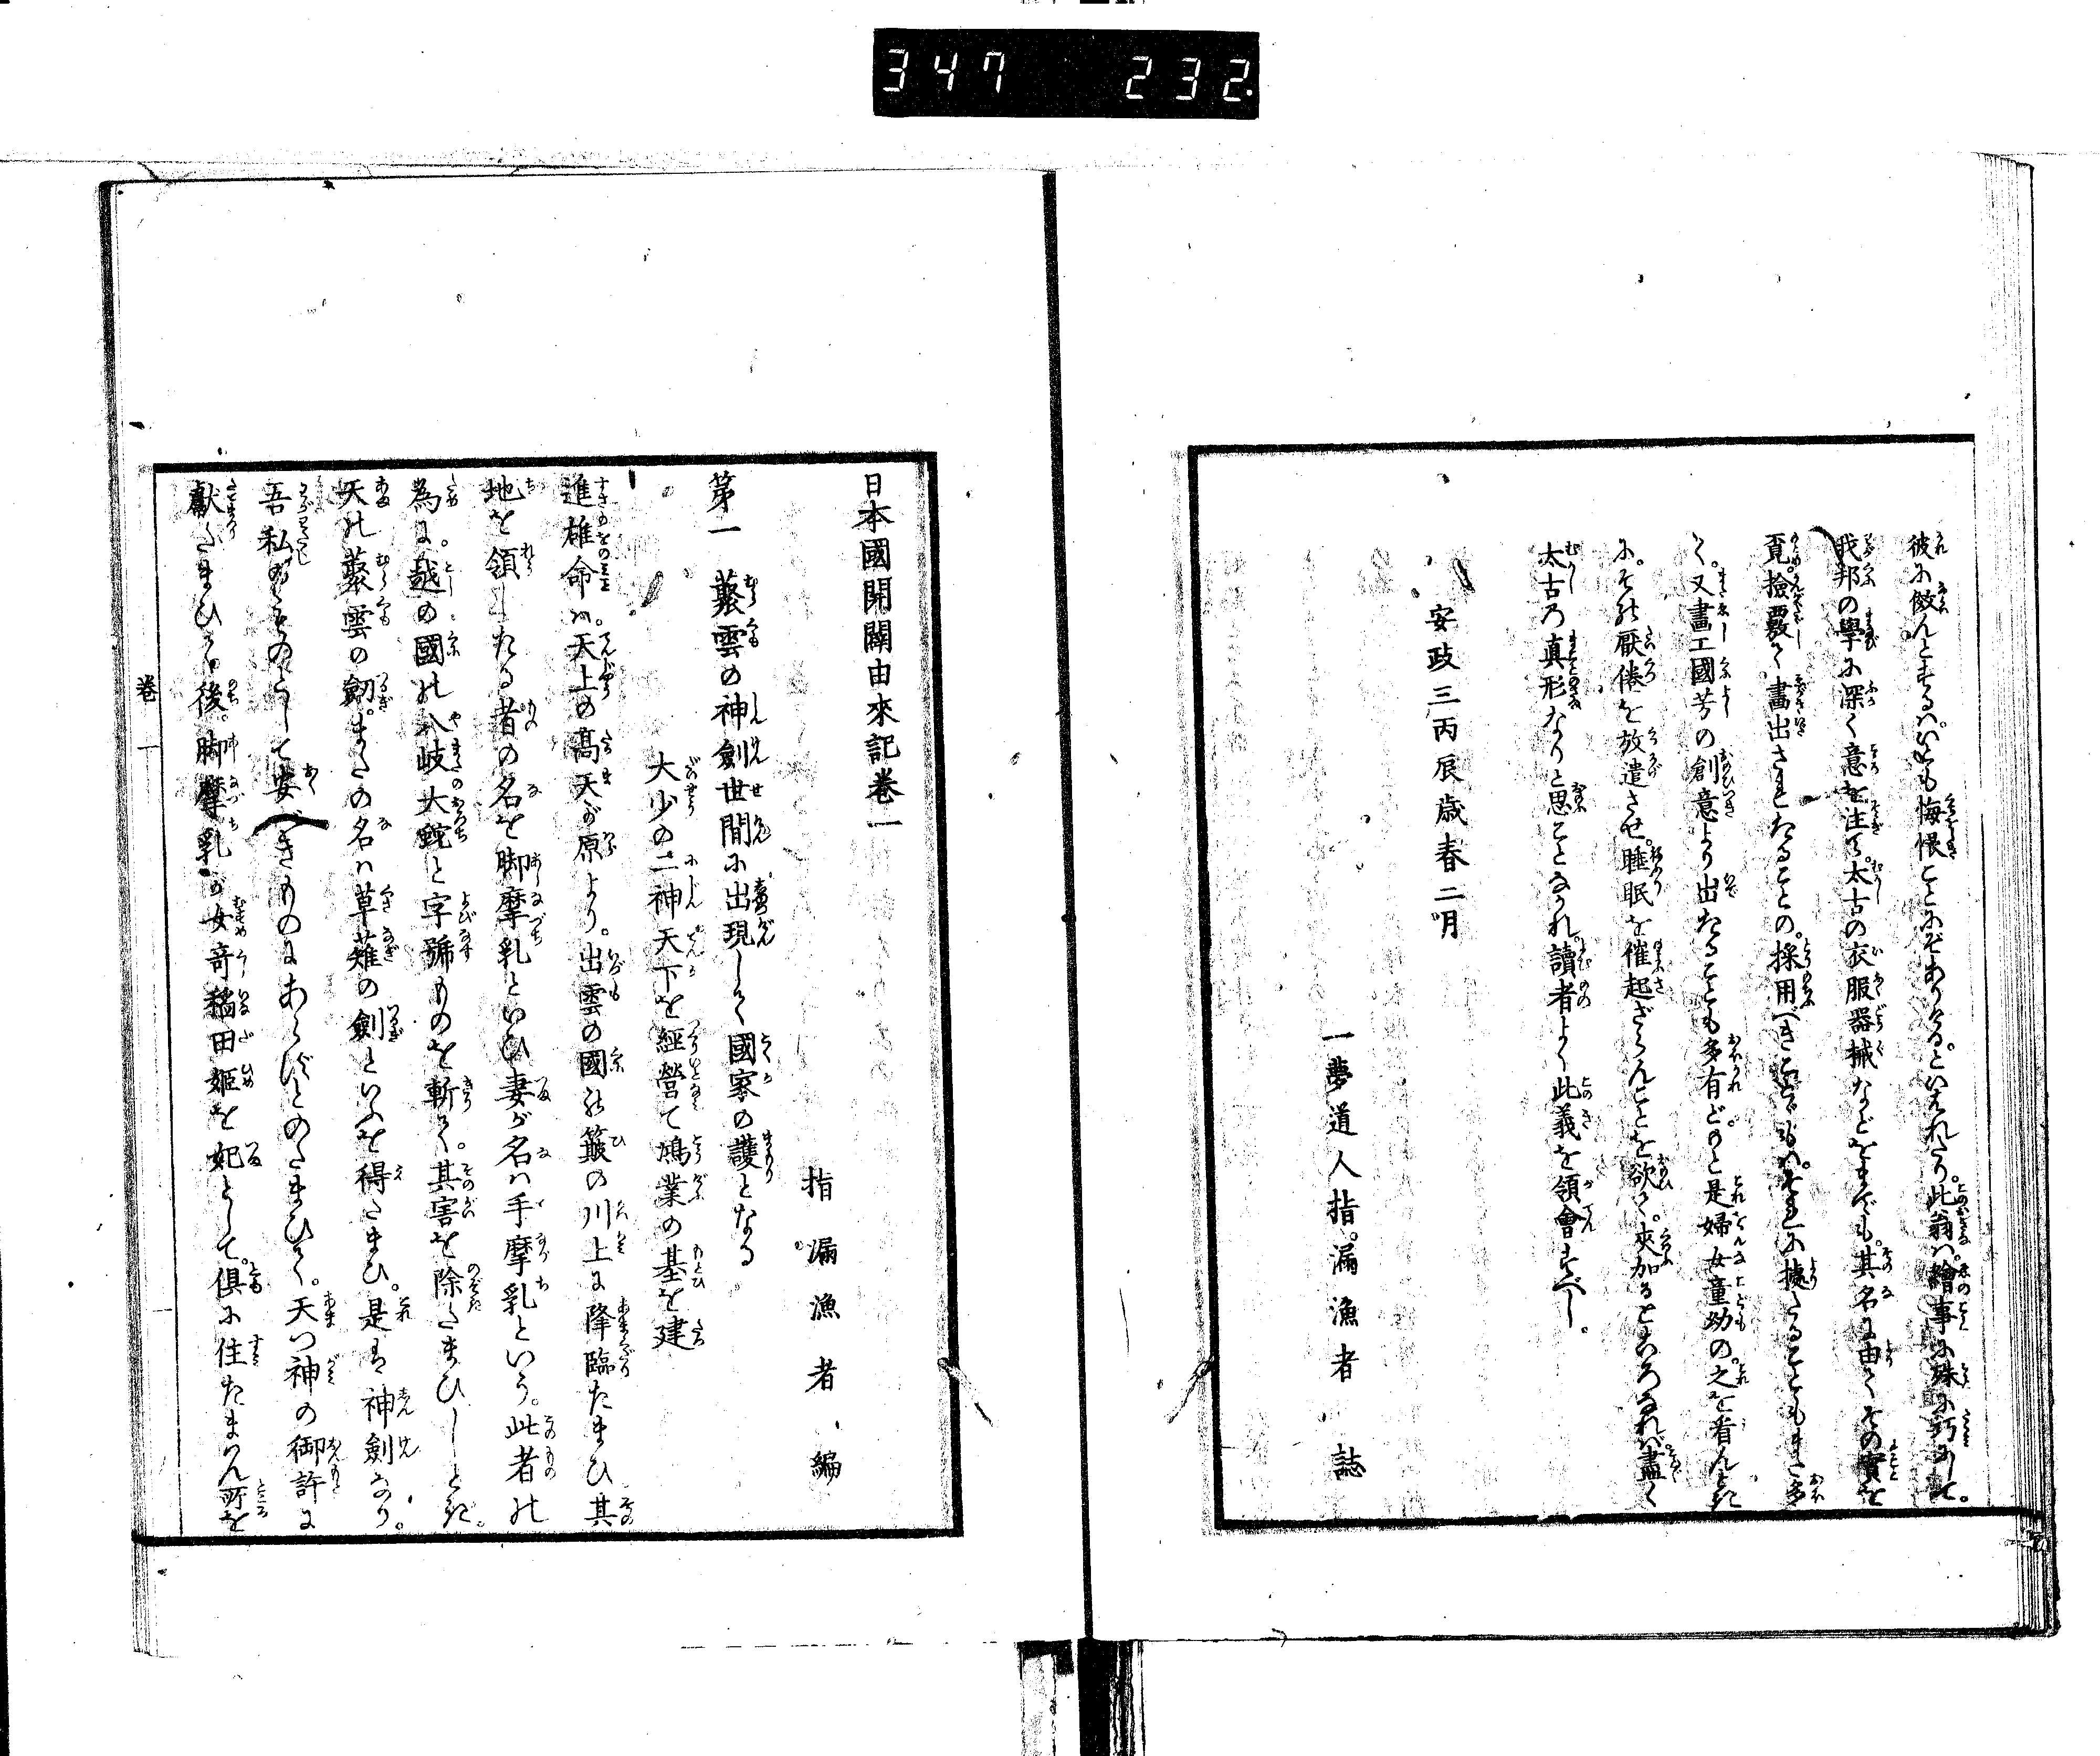 347 232.
彼に倣んとするハ。いとも悔恨ことにぞありける。といはれたり。此翁ハ。繪事に殊に巧にして。
我邦の學に深く意を注て。太古の衣服器械などをまでも。其名に由て。その實を
覓。撿覈て。畫出されたることの。採用べきこと。それに據たることもまた多
く。又畫工國芳の創意より出たることも多有ど。是婦女童幼の。之を看んとき
に。それ厭倦を放遣させ。睡眠を催起ざらんことを欲て。夾加るところなれバ。盡く
太古乃真形なりと思ことなかれ。讀者よく此義を領會すべし。
安政三丙辰歳春二月
一夢道人指漏漁者 誌
日本國開闢由來記巻一
指漏漁者 編
第一 藂雲の神劍世間に出現して國家の護となる
大少の二神天下を經營て鴻業の基を建
進雄命ハ。天上の高天が原より。出雲の國の簸の川上に降臨たまひ其
地を領したる者の名を脚摩乳といひ妻が名ハ手摩乳といふ。此者の
為に。越の國の八岐大蛇と字號ものを斬て。其害を除たまひしとき。
天の藂雲の劒。またの名ハ草薙の劍といふを得たまひ。是ハ神劍なり。
吾私のものとして安べきものにあらずとのたまひて。天つ神の御許に
獻たまひて。後。脚摩乳が女奇稲田姫を妃として。倶に住たまはん所を
巻一